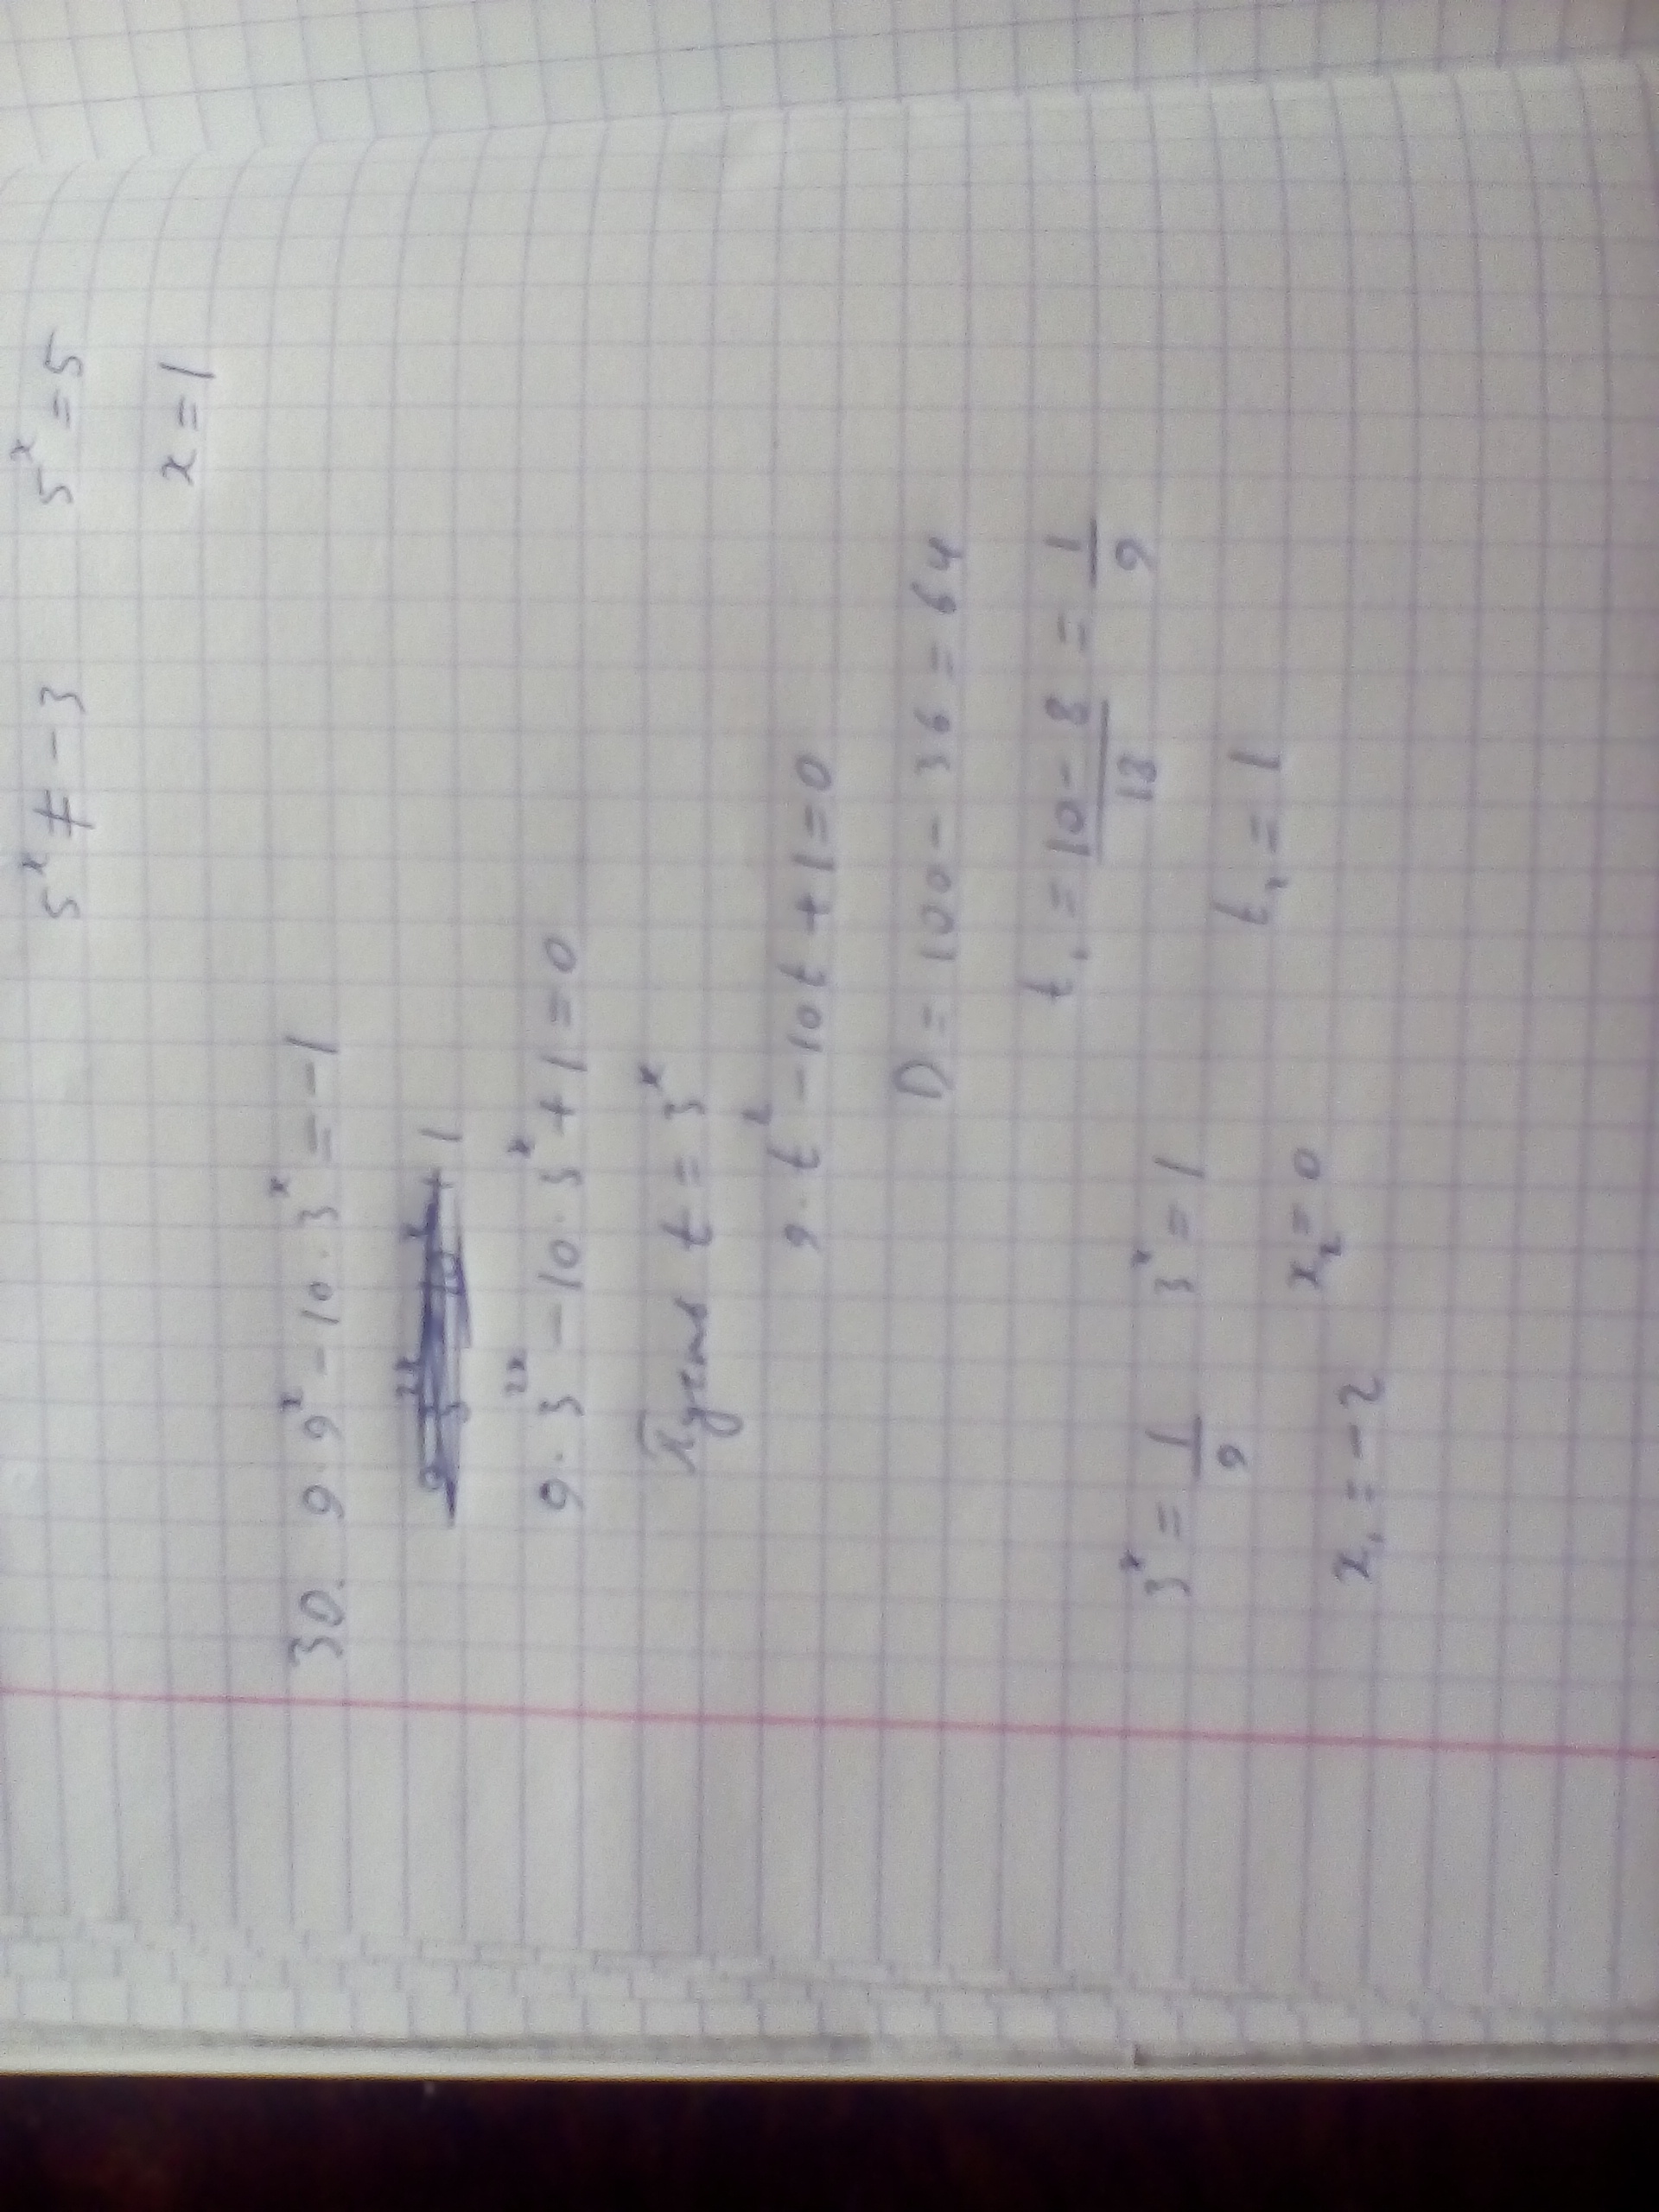 5ˣ ≠ -3 5ˣ = 5
x = 1
30. 9·9ˣ - 10·3ˣ = -1
9·3²ˣ - 10·3ˣ + 1 = 0
Пусть t = 3ˣ
9·t² - 10t + 1 = 0
D = 100 - 36 = 64
t₁ = (10-8)/18 = 1/9
3ˣ = 1/9 3ˣ = 1 t₂ = 1
x₁ = -2 x₂ = 0